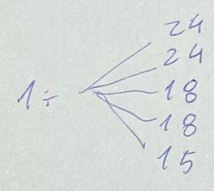 24
24
1÷ 18
18
15